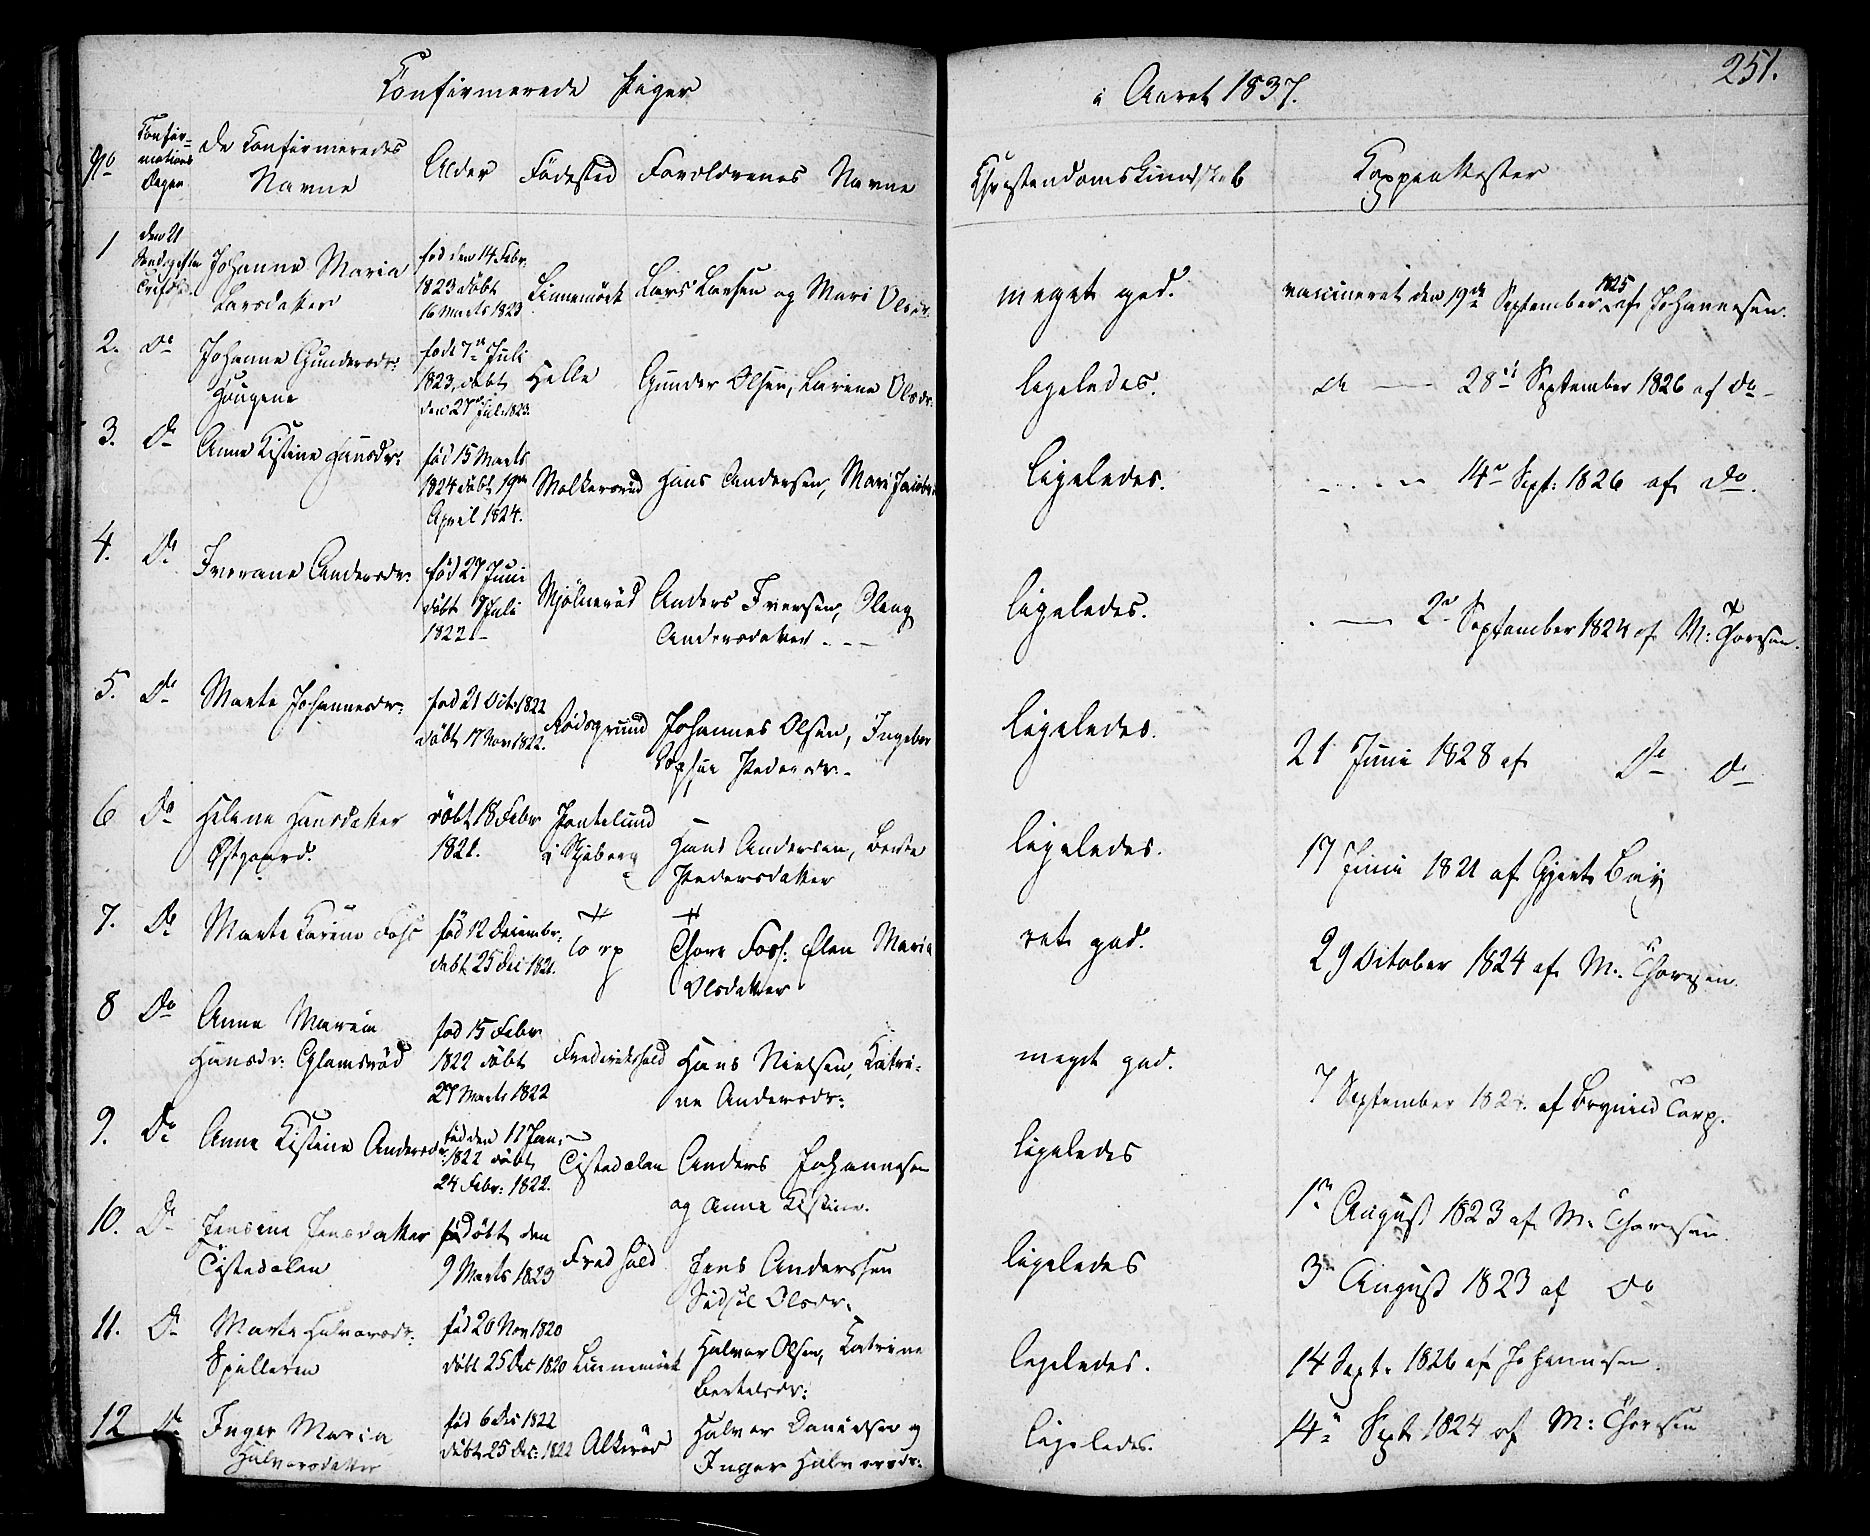 Confirmerede Piger
i Aaret 1837.
251.
No
Confir=
mations
Dagen
De Confirmeredes
Navne
Alder
Födested
Forældrenes Navne
Christendomskundskab
Koppeattester
1
den 21
Trifol:
Johanne Maria
Larsdatter
föd den 14 Febr:
1823 döbt
16 Marts 1823
Linnemörk
Lars Larsen og Mari Olsdr:
meget god.
vaccineret den 19de September 1825 af Johannesen.
2.
do
Johanne Gundersdr:
Hougene
föd 7de Juli
1823, döbt
den 27 Juli 1823.
Helle
Gunder Olsen, Larine Olsdr:
ligeledes.
do — 28de September 1826 af do
3.
do
Anne Kistine Hansdr:
föd 15 Marts
1824 döbt 19de
April 1824.
Hans Andersen, Mari
ligeledes.
14de Sept: 1826 af do.
4.
do
Iverane Andersdr:
föd 27 Juni
döbt Juli
1822
Mjölneröd
Anders Iversen, Oleng
Andersdatter
ligeledes.
2de September 1824 af M: Thoresen.
5.
do
Marte Johannesdr:
föd 21 Oct: 1822
döbt 17 Nov 1822.
Rödsgrund
Johannes Olsen, Ingebor
Sophie Pedersdr.
ligeledes.
21 Juni 1828 af do do
6
do
Helene Hansdatter
Östgaard.
döbt 18 Febr
1821.
i Skjeberg
Hans Andersen, Berte
Pedersdatter
ligeledes.
17 Juni 1821 af Gjert Bay
7.
do
Marte Karine Foss
föd 12 Decembr:
döbt 25 Dec 1821.
Torp
Thore Foss: Elen Maria
Olsdatter
ret god.
29 October 1824 af M: Thoresen.
8
do
Anne Maria
Hansdr: Glamsröd
föd 15 Febr
1822 döbt
27 Marts 1822
Frederikshald
Hans Nielsen, Katri-
ne Andersdr:
meget god.
7 September af Brynild Torp.
9.
do
Anne Kistine Andersdr
föd den 11 Jan:
1822 döbt
24 Febr: 1822.
Tistedalen
Anders Johannesen
og Anne Kistine.
ligeledes
1ste August 1823 af M: Thoresen.
10.
do
Jensine Jensdatter
Tistedalen
döbt den
9 Marts 1823
Fredhald
Jens Anderssen
Sidsel Olsdr:
ligeledes
3de August 1823 af do
11.
do
Marte Halvorsdr:
Spilleren
föd 20 Nov 1820
döbt 25 Dec 1820
Linnemörk
Halvor Olsen, Katrine
Bertelsdr:
ligeledes.
14 Sept. 1826 af Johannesen.
12
do
Inger Maria
Halvorsdatter
föd 6 Dec 1822
döbt 25 Dec: 1822
Alkeröd
Halvor Danielsen og
Inger Halvorsdr:
ligeledes.
14de Sept 1824 af M: Thoresen